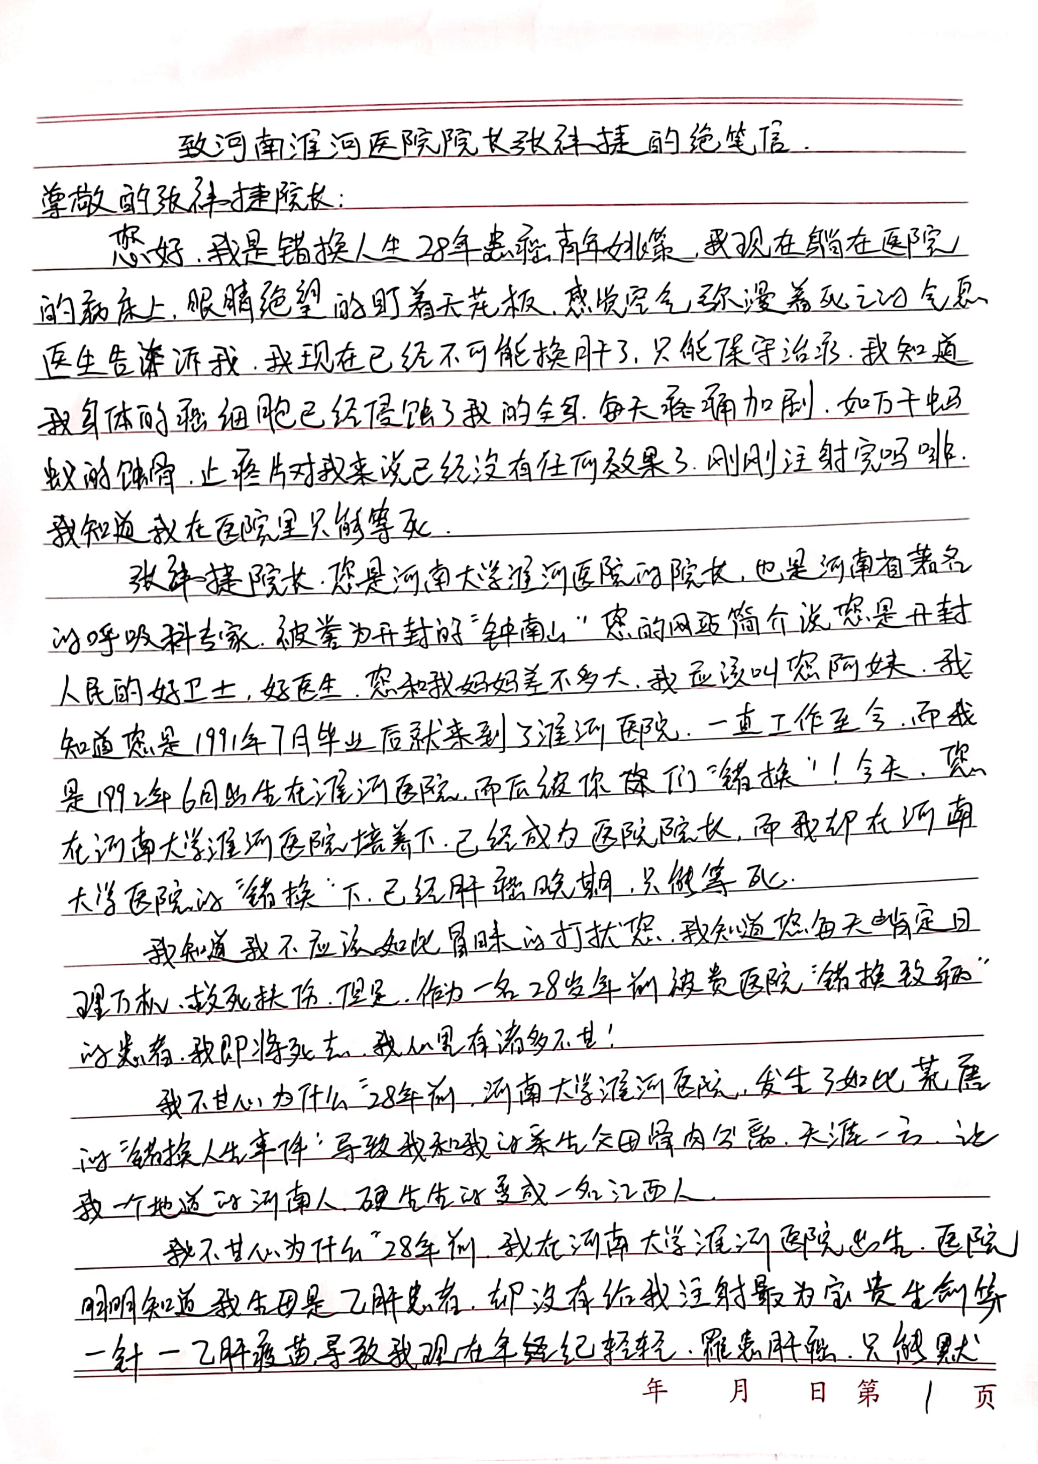 致河南淮河医院院长张祎捷的绝笔信.
尊敬的张祎捷院长:
您好.我是错换人生28年患癌青年姚策,我现在躺在医院
的病床上,眼睛绝望的盯着天花板,感觉空气弥漫着死亡的气息
医生告诉我.我现在已经不可能换肝了,只能保守治疗.我知道
我身体的癌细胞已经侵蚀了我的全身.每天疼痛加剧.如万千蚂
蚁的蚀骨.止疼片对我来说已经没有任何效果了.刚刚注射完吗啡.
我知道我在医院里只能等死.
张祎捷院长.您是河南大学淮河医院的院长,也是河南省著名
的呼吸科专家.被誉为开封的“钟南山”您的网站简介说您是开封
人民的好卫士,好医生.您和我妈妈差不多大.我应该叫您阿姨.我
知道您是1991年7月毕业后就来到了淮河医院.一直工作至今.而我
是1992年6月出生在淮河医院.而后被你们“错换”!今天.您
在河南大学淮河医院培养下.已经成为医院院长,而我却在河南
大学医院的“错换”下.已经肝癌晚期,只能等死.
我知道我不应该如此冒昧的打扰您.我知道您每天肯定日
理万机.救死扶伤.但是.作为一名28岁年前被贵医院“错换致病”
的患者.我即将死去.我心里有诸多不甘!
我不甘心为什么“28年前,河南大学淮河医院,发生了如此荒唐
的“错换人生事件”导致我和我的亲生父母骨肉分离.天涯一方.让
我一个地道的河南人.硬生生的变成一名江西人.
我不甘心为什么“28年前.我在河南大学淮河医院出生.医院
明明知道我生母是乙肝患者.却没有给我注射最为宝贵生命第
一针一乙肝疫苗.导致我现在年纪轻轻.罹患肝癌.只能默
年 月 日 第 1 页